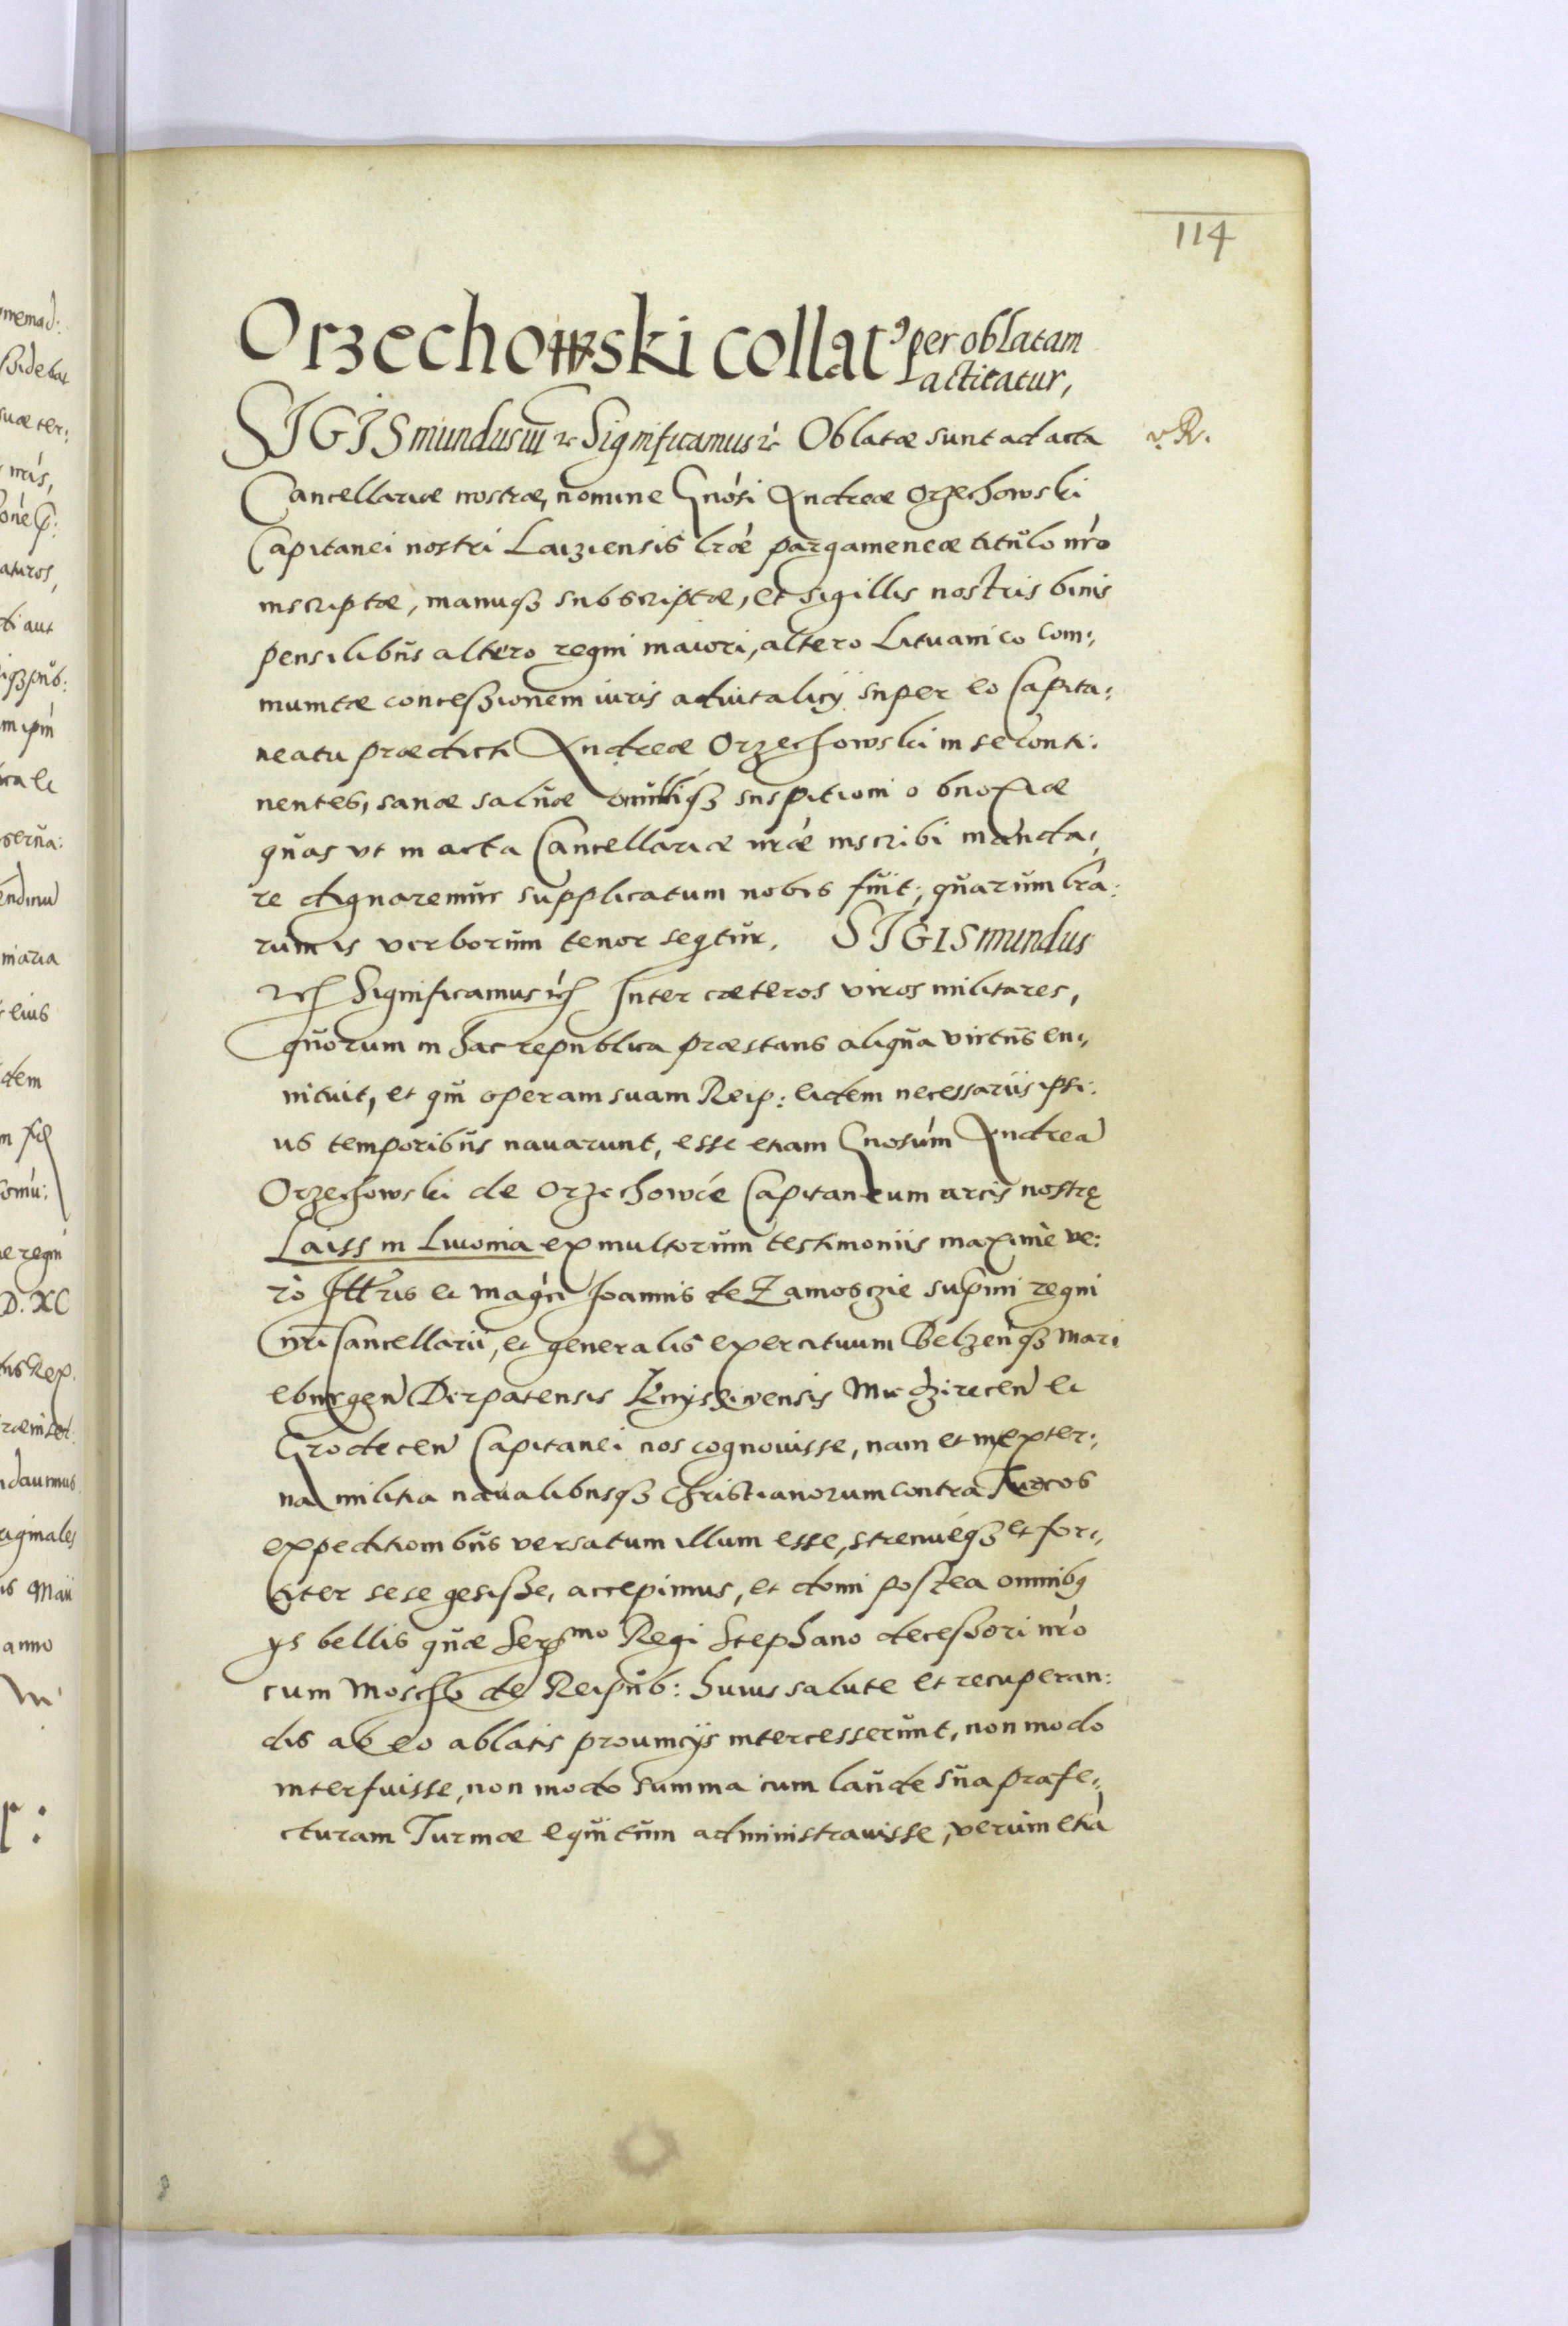 114
Orzechowski collat⁹ per oblatam
actitatur,
SIGISmundus iii ⁊c Significamus ⁊c Oblatæ sunt ad acta
v. R.
Cancellariæ nostræ, nomine Gnósi Andreæ Orzechowski
Capitanei nostri Laiziensis lræ pargameneæ titulo nr̃o
inscriptæ, manuqȝ subscriptæ, et sigillis nostris binis
pensilibus altero regni maiori, altero Lituanico com,
munitæ conceßionem iuris aduitalicij super eo Capita:
neatu prædicti Andreæ Orzechowski in se conti:
nentes, sanæ saluæ nulliqȝ suspitioni obnoxiæ
quas vt in acta Cancellariæ nr̃æ inscribi manda,
re dignaremur supplicatum nobis fuit; quarum lr̃a:
rum is verborum tenor seqtur. SIGISmundus
⁊c Significamus ⁊c Inter cæteros viros militares,
quorum in hac republica præstans aliqua virtus en,
nituit, et qui operam suam Reip: eidem necessariis ipsi:
us temporibus nauarunt, esse etiam Gnosúm Andreã
Orzechowski de Orzechowcé Capitaneum arcis nostrę
Laiss in Liuonia ex multorum testimoniis maximè ve:
rò Ill̃ris et magci Joannis de Zamosczie sup̃mi regni
nr̃i Cancellarii, et generalis exercituum Belzen̄qȝ Mari
eburgen̄ Dirpatensis Knyszinensis Miedzirecen̄ et
Grodecen̄ Capitanei nos cognouisse, nam et in exter,
na militia naualibusqȝ Christianorum contra Turcos
expeditionibus versatum illum esse, strenuéqȝ et for,
titer sese gesiße, accepimus, et domi postea omnibꝫ
ys bellis quæ Serᵐᵒ Regi Stephano deceßori nr̃o
cum Moscho de Reipub: huius salute et recuperan:
dis ab eo ablatis prouincijs intercesserunt, non modo
interfuisse, non modo summa cum laude sua præfe,
cturam Turmæ equitum administrauisse, verùm etiã